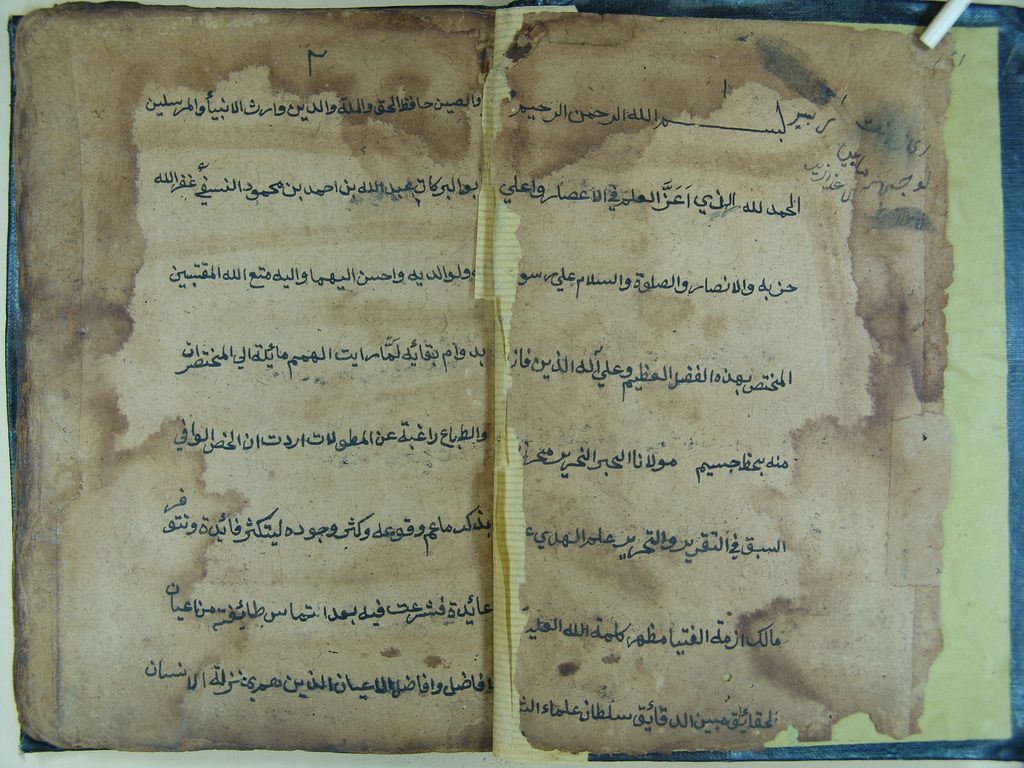 بسم الله الرحمن الرحيم
الحمد لله الذي اَعَزَّ العلم في الاعصار واعلي
حزبه والانصار والصلوة والسلام علي رسو
المختص بهذه الفضل العظيم وعلي آله الذين فاز
منه بحظ جسيم مولانا الحبر النحرير
السبق في التقرير والتحرير علم الهدي
مالك ازمة الفتيا مظهر كلمة الله العليا
الحقائق مبين الدقائق سلطان علماء
٢
والصين حافظ الحق والملة والدين وارث الانبيأ والمرسلين
ابو البركات عبد الله بن احمد بن محمود النسفي غفر الله
ولوالديه واحسن اليهما واليه متع الله المقتبسين
بدوام بقائه لَمَّا رايت الهمم مائلة الي المختصرات
والطباع راغبة عن المطولات اردت ان الخص الوافي
بذكر ما عم وقوعه وكثر وجوده ليتكثر فائدة وتتوفر
عائدة فشرعت فيه بعد التماس طائفة من اعيان
افاضل وافاضل الاعيان الذين هم بمنزلة الانسان